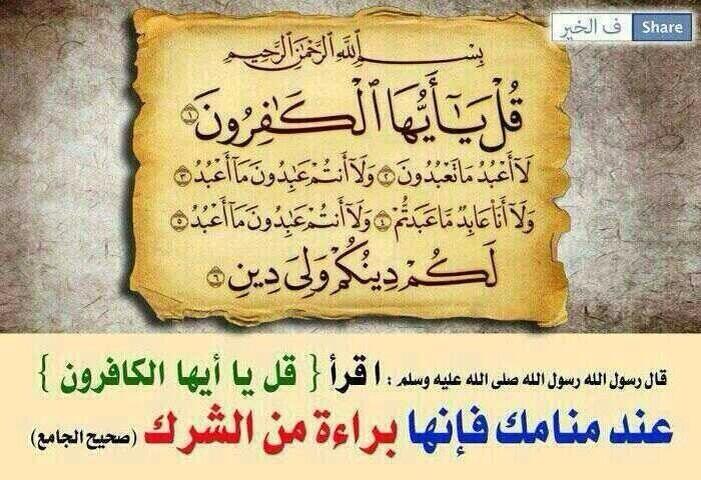 ف الخير Share
بِسْمِ ٱللَّهِ ٱلرَّحْمَٰنِ ٱلرَّحِيمِ
قُلْ يَٰٓأَيُّهَا ٱلْكَٰفِرُونَ ١
لَآ أَعْبُدُ مَا تَعْبُدُونَ ٢ وَلَآ أَنتُمْ عَٰبِدُونَ مَآ أَعْبُدُ ٣
وَلَآ أَنَا۠ عَابِدٌ مَّا عَبَدتُّمْ ٤ وَلَآ أَنتُمْ عَٰبِدُونَ مَآ أَعْبُدُ ٥
لَكُمْ دِينُكُمْ وَلِىَ دِينِ ٦
قال رسول الله رسول الله صلى الله عليه وسلم : اقرأ { قل يا أيها الكافرون }
عند منامك فإنها براءة من الشرك (صحيح الجامع)